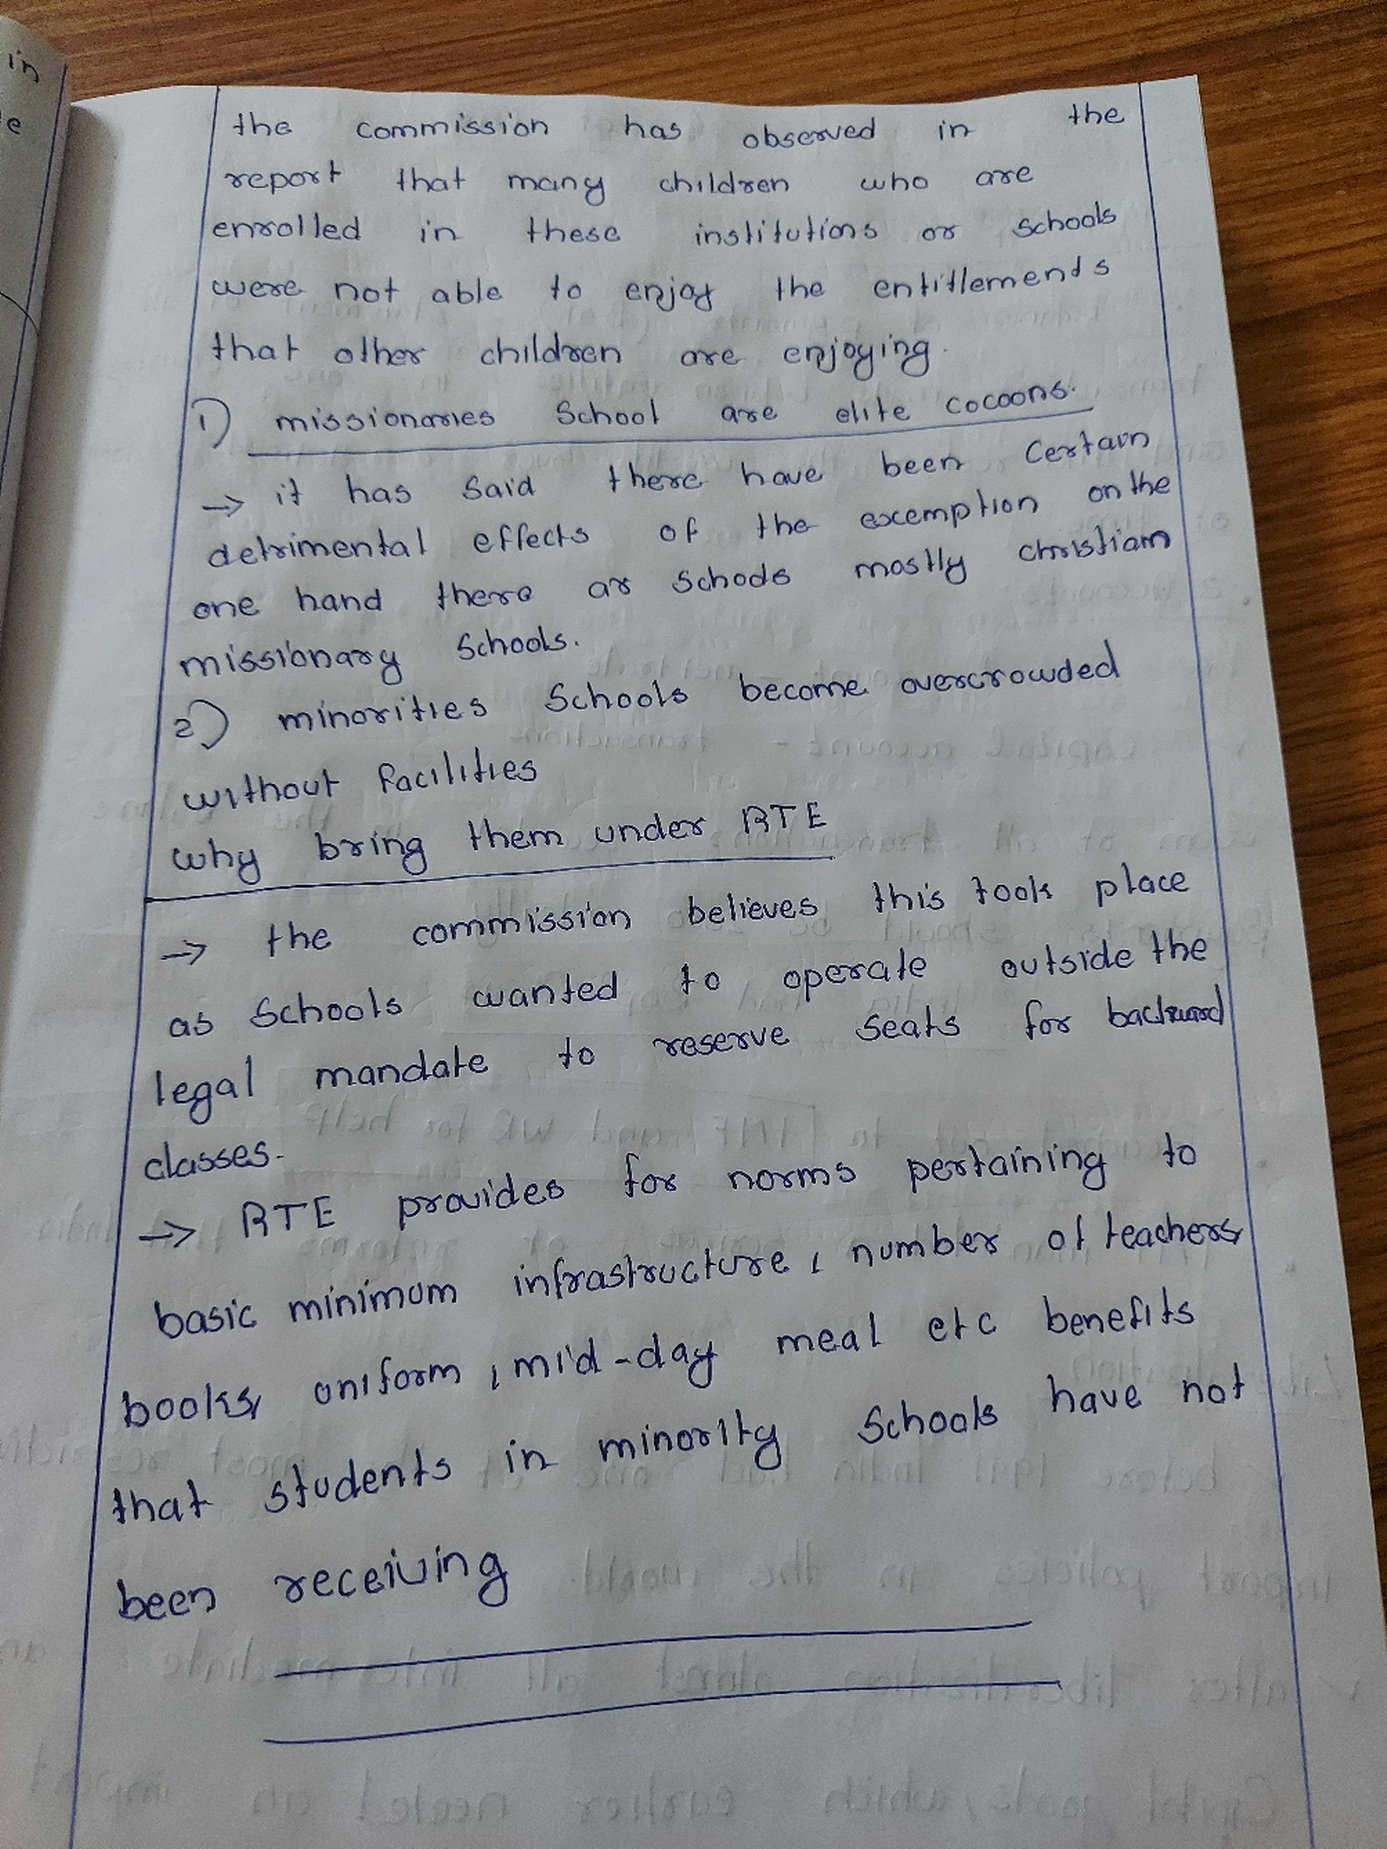 in
e
the commission has observed in the
report that many children who are
enrolled in these institutions or schools
were not able to enjoy the entitlements
that other children are enjoying.
1) missionaries School are elite cocoons.
→ it has said there have been certain
detrimental effects of the excemption on the
one hand there ar schools mostly christian
missionary schools.
2) minorities schools become overcrowded
without facilities
why bring them under RTE
→ the commission believes this took place
as schools wanted to operate outside the
legal mandate to reserve seats for backward
classes.
→ RTE provides for norms pertaining to
basic minimum infrastructure, number of teachers,
books, uniform, mid-day meal etc benefits
that students in minority schools have not
been receiving